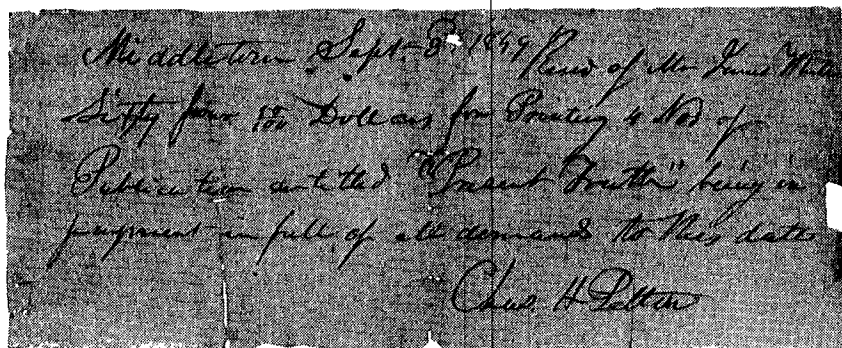 Middletown Sept. 3d 1849 Recd of Mr James White
Sixty four Dollars for Printing 4 Nos of
Publication entitled "Present Truth" being in
payment in full of all demands to this date
Chas. H Pelton